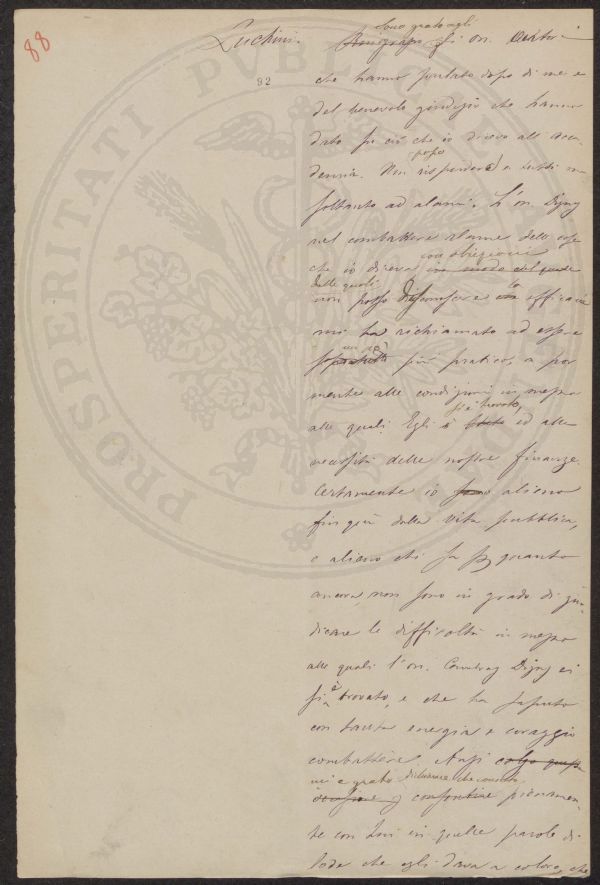 88
92
PROSPERITATI PUBLICAE
Luchini.
Sono grato agli
on. Oratori
che hanno parlato dopo di me e
del benevolo giudizio che hanno
dato su ciò che io dicevo all' acca-
demia. Non risponderò a tutti ma
posso
soltanto ad alcuni. L' on. Digny
nel combattere alcune delle cose
con obiezioni
che io diceva in modo del quale
delle quali
non posso disconoscere la efficacia
mi ha richiamato ad essere
un po'
soprattutto più pratico, a por
mente alle condizioni in mezzo
si è trovato,
alle quali Egli è stato ed alle
necessità delle nostre finanze.
Certamente io sono alieno
fin qui dalla vita pubblica,
e alieno chi sa per quanto
ancora, non sono in grado di giu-
dicare le difficoltà in mezzo
alle quali l'on. Cambray Digny ci
si è trovato, e che ha saputo
con tanta energia e coraggio
combattere. Anzi colgo questa
mi è grato dichiarare che consento
occasione consentire pienamen-
te con Lui in quelle parole di
lode che egli dava a coloro, che